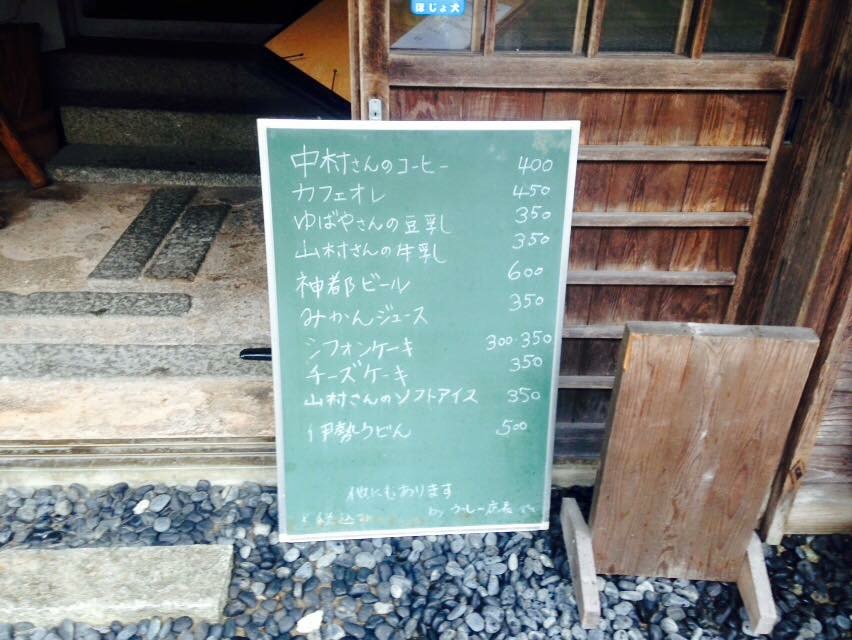 ほじょ犬
中村さんのコーヒー 400
カフェオレ 450
ゆばやさんの豆乳 350
山村さんの牛乳 350
神都ビール 600
みかんジュース 350
シフォンケーキ 300・350
チーズケーキ 350
山村さんのソフトアイス 350
伊勢うどん 500
他にもあります
税込 by うしー店長